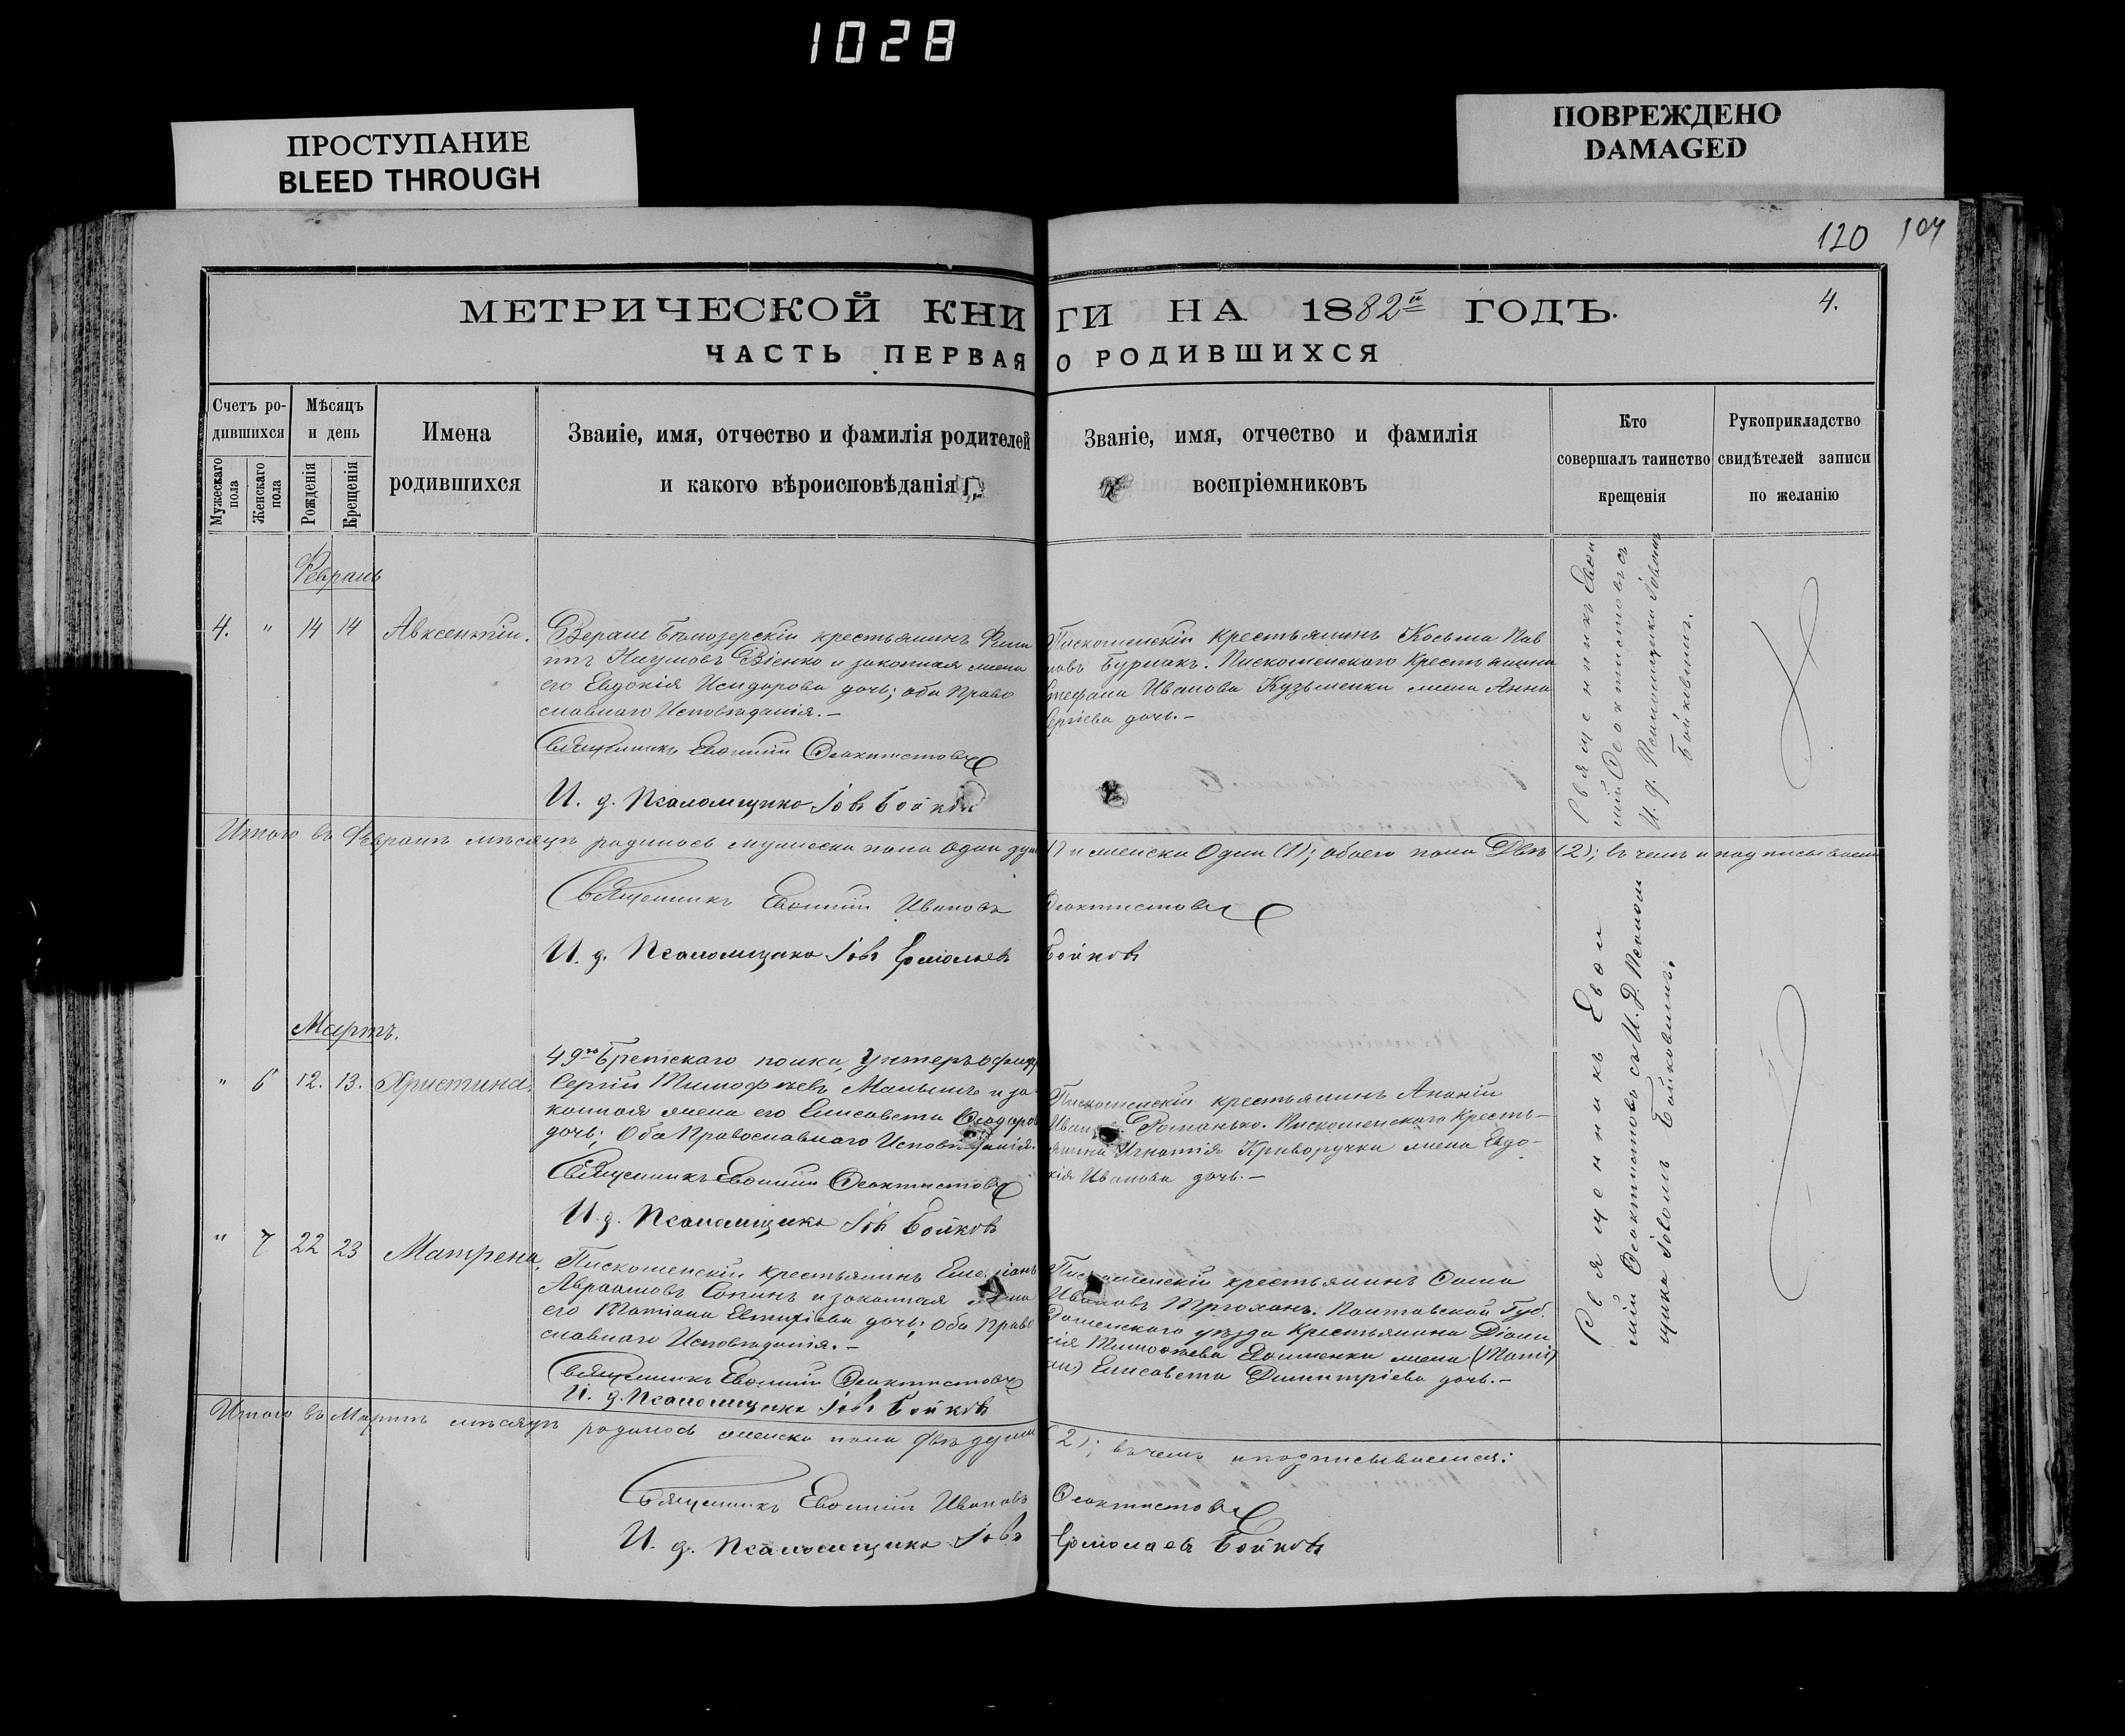 1028
ПРОСТУПАНИЕ
BLEED THROUGH
ПОВРЕЖДЕНО
DAMAGED
120 104
МЕТРИЧЕСКОЙ КНИГИ НА 1882й ГОДЪ.
4.
ЧАСТЬ ПЕРВАЯ О РОДИВШИХСЯ
Счетъ ро-
дившихся
Мужескаго пола
Женскаго пола
Мѣсяцъ
и день
Рожденія
Крещенія
Имена
родившихся
Званіе, имя, отчество и фамилія родителей
и какого вѣроисповѣданія
Званіе, имя, отчество и фамилія
воспріемниковъ
Кто
совершалъ таинство
крещенія
Рукоприкладство
свидѣтелей записи
по желанію
Февраль
4. " 14 14 Авксентій.
крестьянинъ Фили
ппъ Наумовъ и законная жена
его Евдокія Исидорова дочь; оба Право
славнаго Исповѣданія.-
Священникъ Евѳимій Ѳеоктистовъ
И. д. Псаломщика Іовъ Бойковъ
Пискошенскій крестьянинъ Косьма Пав
ловъ Бурлакъ. Пискошенскаго крестьянина
Стефана Иванова Кузьменка жена Анна
Сергіева дочь.-
Священникъ Евѳи
мій Ѳеоктистовъ съ
И. д. Псаломщика Іовомъ
Бойковымъ.
Итого въ Февралѣ мѣсяцѣ родилось мужеска пола одна душа (1) и женска Одна (1); обоего пола Двѣ (2); въ чемъ и подписываемся
Священникъ Евѳимій Ивановъ Ѳеоктистовъ
И. д. Псаломщика Іовъ Ермолаевъ Бойковъ
Мартъ.
" 6 12. 13. Христина.
49го Брестскаго полка, Унтеръ офицеръ
Сергій Тимофѣевъ и за
конная жена его Елисавета Ѳеодорова
дочь; Оба Православнаго Исповѣданія.
Священникъ Евѳимій Ѳеоктистовъ
И. д. Псаломщика Іовъ Бойковъ
Пискошенскій крестьянинъ Ананій
Ивановъ Романько. Пискошенскаго Кресть-
янина Игнатія Криворучки жена Евдо-
кія Иванова дочь.-
" 7 22 23 Матрена.
Пискошенскій крестьянинъ Емеліанъ
Авраамовъ и законная жена
его Татіана Евтихіева дочь; Оба Право
славнаго Исповѣданія.-
Священникъ Евѳимій Ѳеоктистовъ
И. д. Псаломщика Іовъ Бойковъ
Пискошенскій крестьянинъ Ѳома
Ивановъ Трюханъ. Полтавской Губ.
уѣзда Крестьянина Діони
сія Тимоѳеева жена
Елисавета Димитріева дочь.-
Священникъ Евѳи
мій Ѳеоктистовъ съ И. Д. Псалом
щика Іовомъ Бойковымъ.
Итого въ Мартѣ мѣсяцѣ родилось женска пола двѣ души (2); въ чемъ и подписываемся:
Священникъ Евѳимій Ивановъ Ѳеоктистовъ
И. д. Псаломщика Іовъ Ермолаевъ Бойковъ